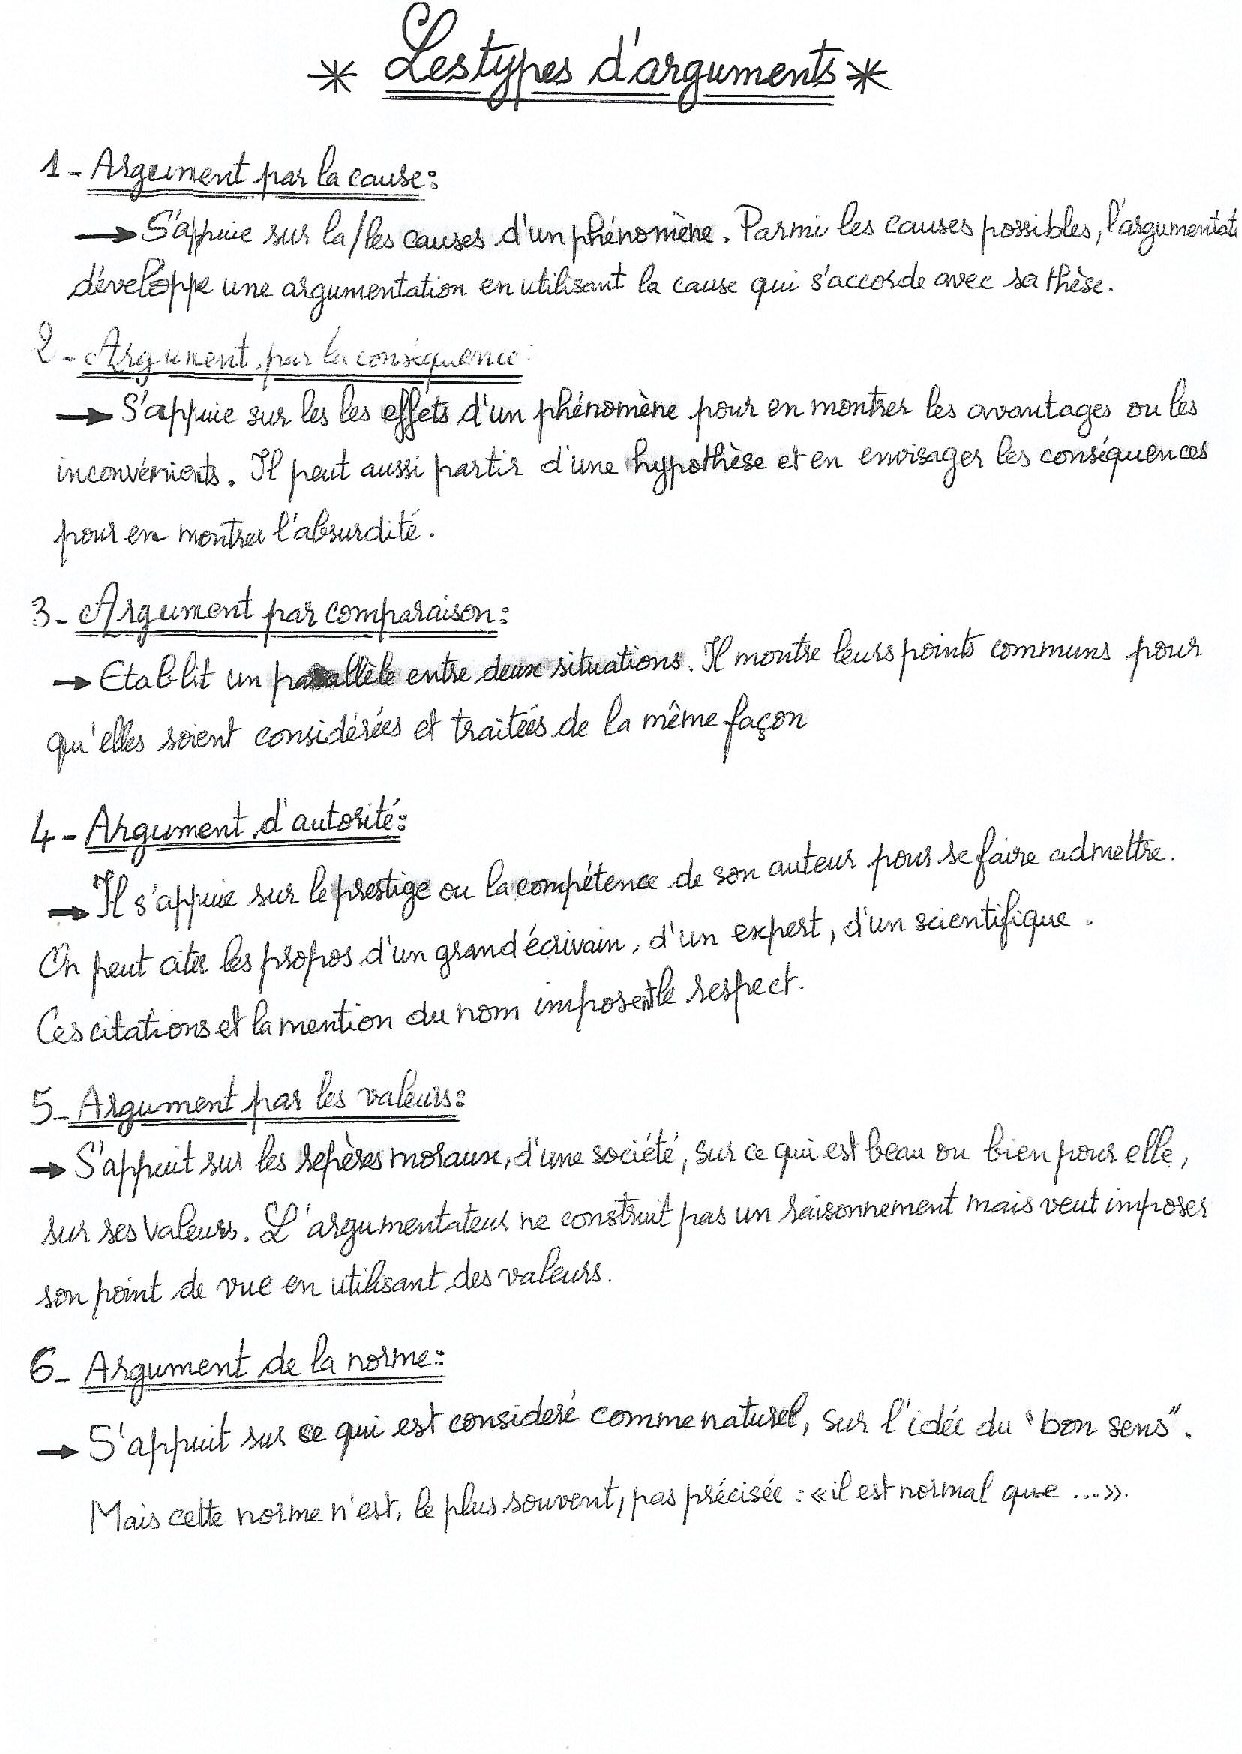 * Les types d'arguments *
1 - Argument par la cause :
→ S'appuie sur la/les causes d'un phénomène. Parmi les causes possibles, l'argumentat
développe une argumentation en utilisant la cause qui s'accorde avec sa thèse.
2 - Argument par la conséquence :
→ S'appuie sur les les effets d'un phénomène pour en montrer les avantages ou les
inconvénients. Il peut aussi partir d'une hypothèse et en envisager les conséquences
pour en montrer l'absurdité.
3 - Argument par comparaison :
→ Etablit un parallèle entre deux situations. Il montre leurs points communs pour
qu'elles soient considérées et traitées de la même façon
4 - Argument d'autorité :
→ Il s'appuie sur le prestige ou la compétence de son auteur pour se faire admettre.
On peut citer les propos d'un grand écrivain, d'un expert, d'un scientifique.
Ces citations et la mention du nom imposent le respect.
5 - Argument par les valeurs :
→ S'appuit sur les repères moraux, d'une société, sur ce qui est beau ou bien pour elle,
sur ses valeurs. L'argumentateur ne construit pas un raisonnement mais veut imposer
son point de vue en utilisant des valeurs.
6 - Argument de la norme :
→ S'appuit sur ce qui est consideré comme naturel, sur l'idée du "bon sens".
Mais cette norme n'est, le plus souvent, pas précisée : «il est normal que ...».